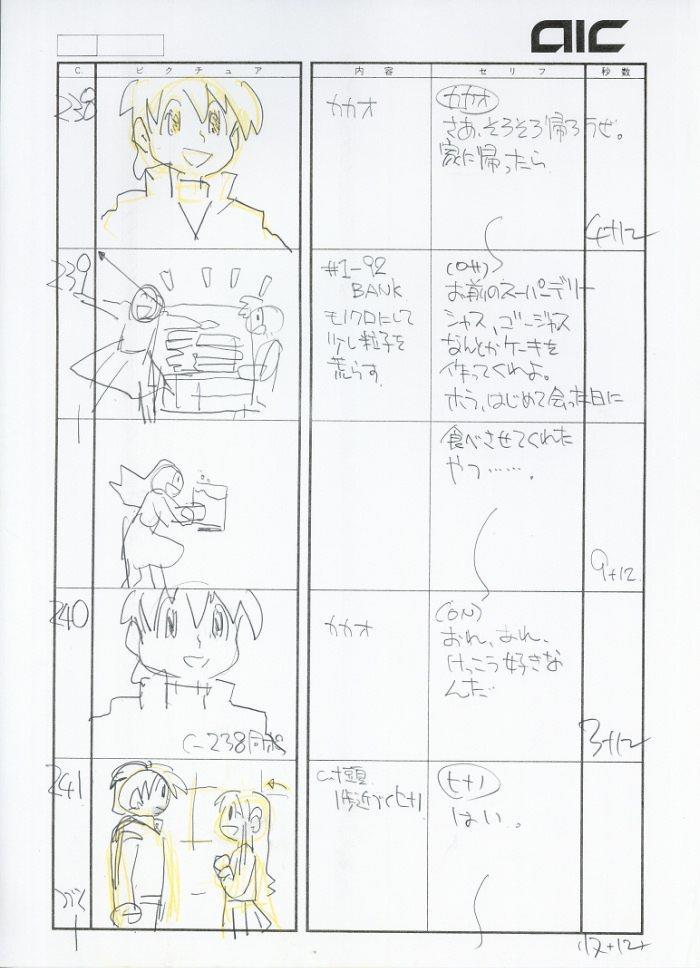 aic
C.
ピクチュア
内容
セリフ
秒数
238
カカオ
カカオ
さあ、そろそろ帰ろうぜ。
家に帰ったら
4+12
239
#1-92
BANK
モノクロにして
少し粒子を
荒らす
(OFF)
お前のスーパーデリー
シャス、ゴージャス
なんとかケーキを
作ってくれよ。
ホラ、はじめて会った日に
食べさせてくれた
やつ……。
9+12
240
カカオ
(ON)
おれ、あれ、
けっこう好きな
んだ
C-238同ポ
3+12
241
C頭
1歩近づく
はい。
つづく